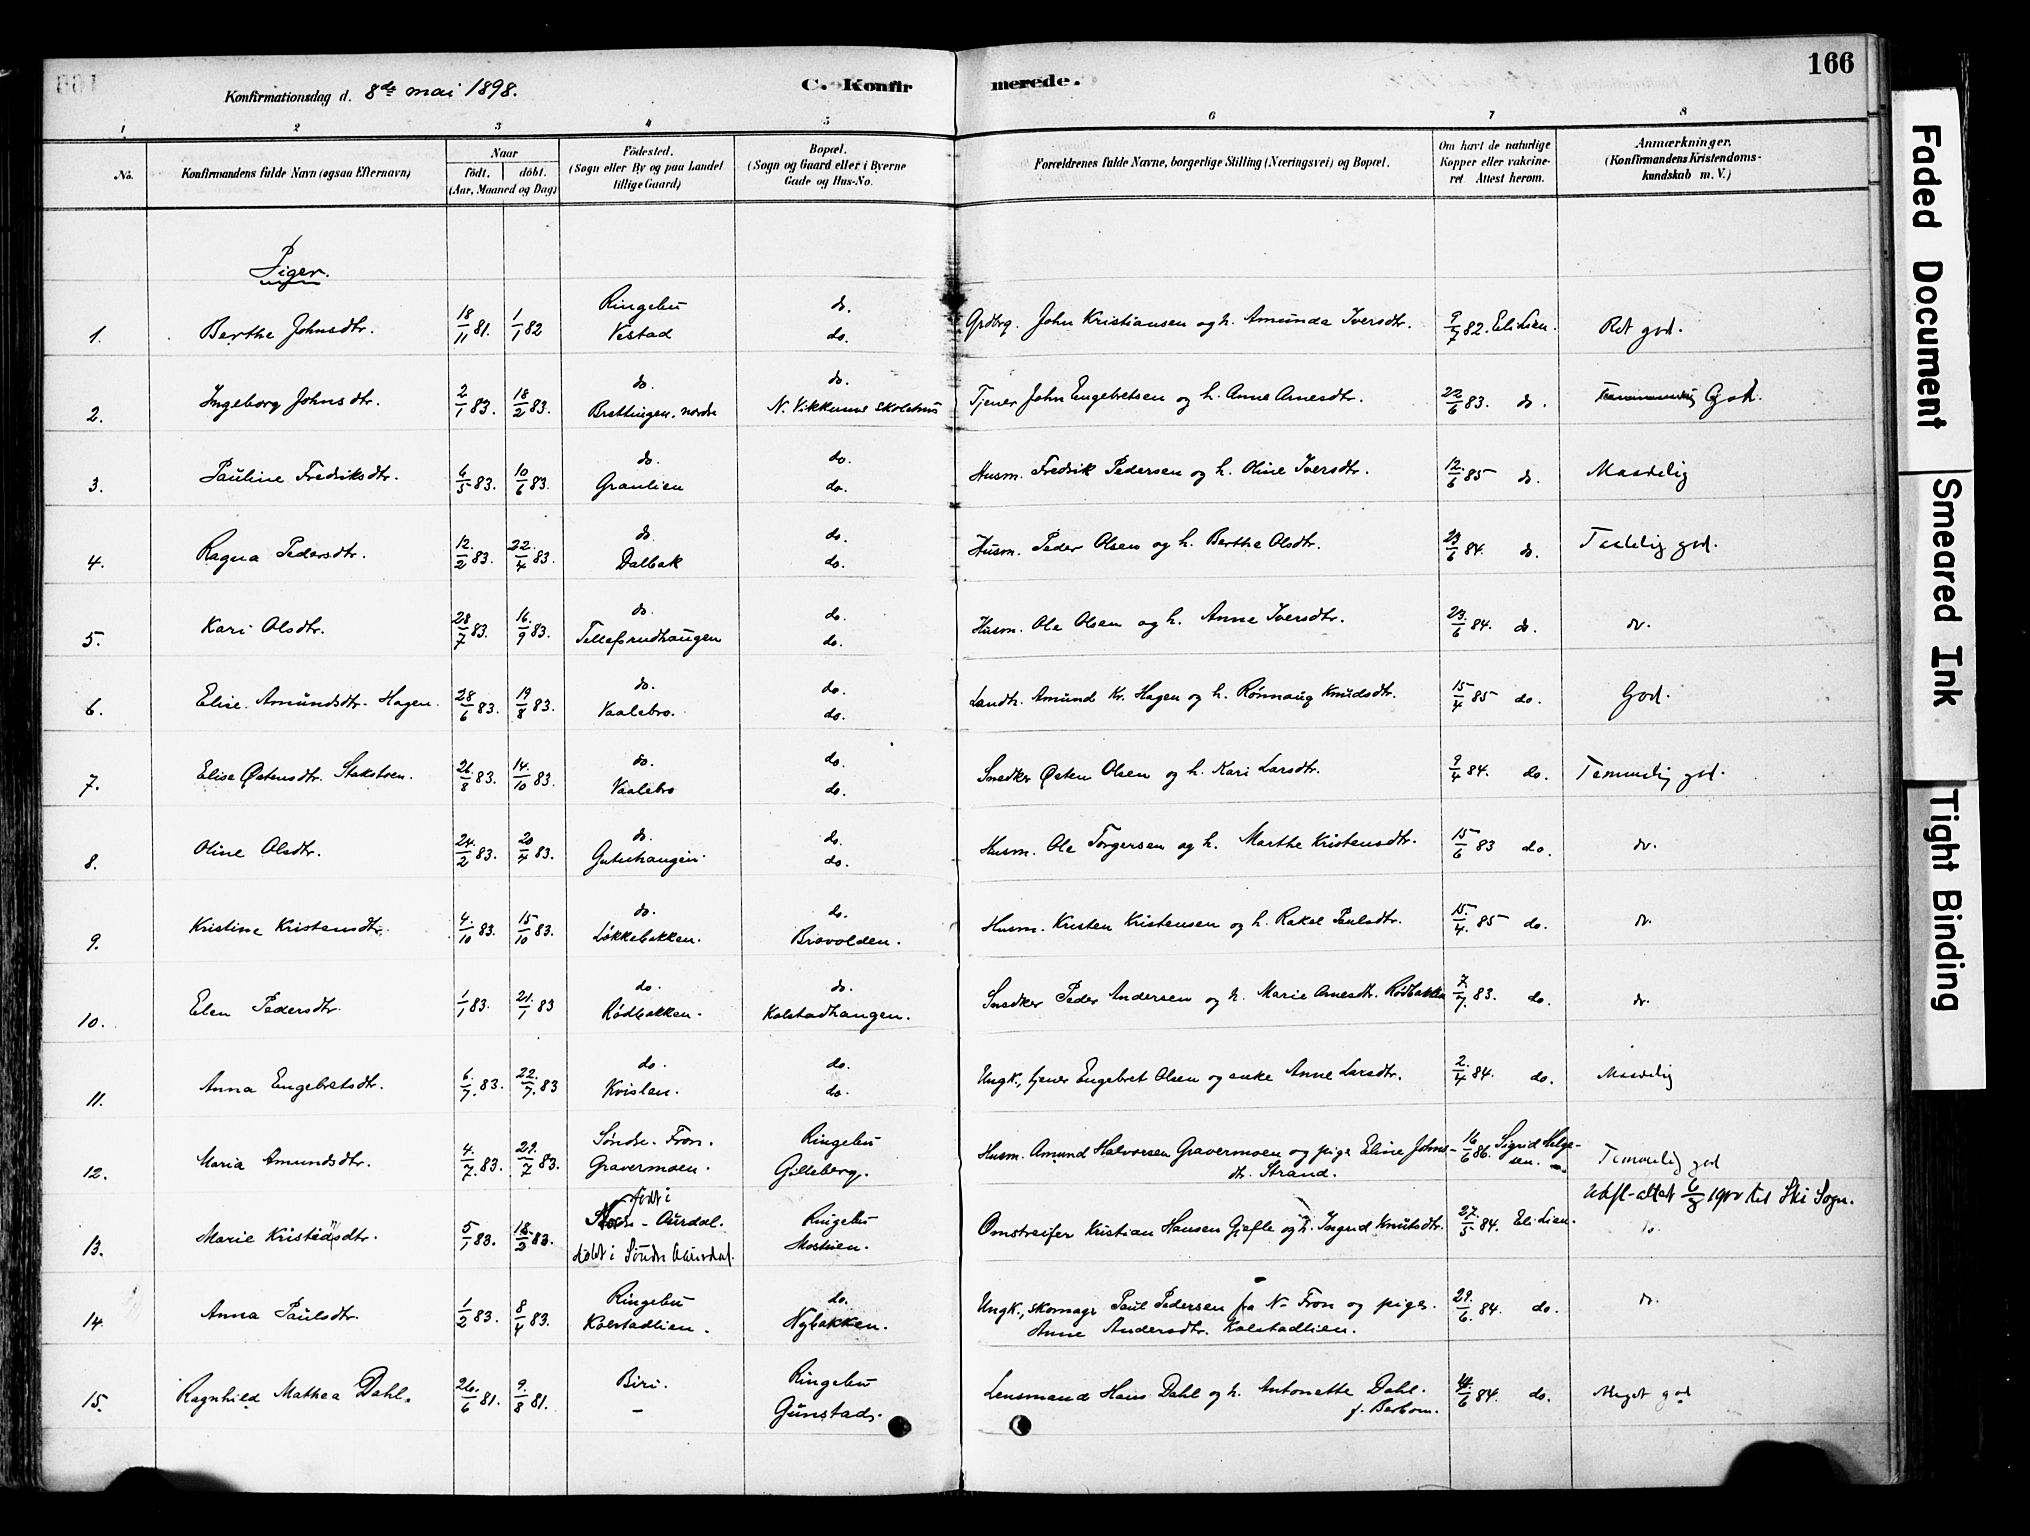 166
Konfirmationsdag d. 8de mai 1898.
C. Konfirmerede.
1 2 3 4 5 6 7 8
No.
Konfirmandens fulde Navn (ogsaa Efternavn)
Naar
födt. döbt.
(Aar, Maaned og Dag)
Födested.
(Sogn eller By og paa Landet
tillige Gaard)
Bopæl.
(Sogn og Gaard eller i Byerne
Gade og Hus-No.
Forældrenes fulde Navne, borgerlige Stilling (Næringsvei) og Bopæl.
Om havt de naturlige
Kopper eller vakcine-
ret Attest herom.
Anmærkninger.
(Konfirmandens Kristendoms-
kundskab m. V.)
Piger.
1. Berthe Johnsdtr. 18/11 81. 1/1 82 Ringebu Vestad do. do. Grdbrg. John Kristiansen og h. Amunda Iversdtr. 9/7 82. Eli Lien. Ret god.
2. Ingeborg Johnsdtr. 2/1 83. 18/2 83. do. Brettingen, nordre do. N. Vikkunne Skolehus Tjener John Engebretsen og h. Anne Arnesdtr. 22/6 83. do. God.
3. Pauline Fredriksdtr. 6/5 83. 10/6 83. do. Granlien do. do. Husm. Fredrik Pedersen og h. Oline Iversdtr. 12/6 85 do. Maadelig
4. Ragna Pedersdtr. 12/2 83. 22/4 83. do. Dalbak do. do. Husm. Peder Olsen og h. Berthe Olsdtr. 23/6 84. do. Taalelig god.
5. Kari Olsdtr. 28/7 83. 16/9 83. do. Tellefsrudhaugen do. do. Husm. Ole Olsen og h. Anne Iversdtr. 23/6 84. do. do.
6. Elise Amundsdtr. Hagen. 28/6 83. 19/8 83. do. Vaalebro. do. do. Landh. Amund Kr. Hagen og h. Rønnaug Knudsdtr. 15/4 85 do. God.
7. Elise Østensdtr. Stakstoen. 26/8 83. 14/10 83. do. Vaalebro do. do. Snedker Østen Olsen og h. Kari Larsdtr. 9/4 84. do. Temmelig god.
8. Oline Olsdtr. 24/2 83. 20/4 83. do. Gutuhaugen. do. do. Husm. Ole Torgersen og h. Marthe Kristensdtr. 15/6 83 do. do.
9. Kristine Kristensdtr. 4/10 83. 15/10 83. do. Løkkebakken. do. Brovolden. Husm. Kristen Kristensen og h. Rakel Paulsdtr. 15/4 85 do. do.
10. Elen Pedersdtr. 1/1 83. 21/1 83 do. Rødbakken. do. Kolstadhaugen. Snedker Peder Andersen og h. Marie Arnesdtr. Rødbakken 7/7 83. do. do.
11. Anna Engebretsdtr. 6/7 83. 22/7 83 do. Kvislen. do. do. Ungk., tjener Engebret Olsen og enke Anne Larsdtr. 2/4 84. do. Maadelig
12. Maria Amundsdtr. 4/7 83. 29/7 83. Søndre-Fron. Gravermoen. Ringebu Gilleberg. Husm. Amund Halvorsen Gravermoen og pige Eline Johns-
dtr. Strand. 16/6 86. Sigrid Helge-
sen. Temmelig god
Udfl-attest 6/3 1900 til Ski Sogn.
13. Marie Kristiansdtr. 5/1 83. 18/2 83. født i Nordre-Aurdal. døbt i Søndre Aurdal. Ringebu Mostuen. Omstreifer Kristian Hansen Gjefle og h. Ingrid Knutsdtr. 27/5 84. Eli Lien. do.
14. Anna Paulsdtr. 1/2 83. 8/4 83. Ringebu Kolstadlien. do. Nybakken. Ungk., skomagr Paul Pedersen fra N. Fron og piges.
Anne Andersdtr. Kolstadlien. 29/6 84. do. do.
15. Ragnhild Mathea Dahl. 26/6 81. 9/8 81. Biri. – Ringebu Gunstad. Lensmand Hans Dahl og h. Antonette Dahl.
f. Berbom. 14/6 84. do. Meget god
Faded Document
Smeared Ink
Tight Binding